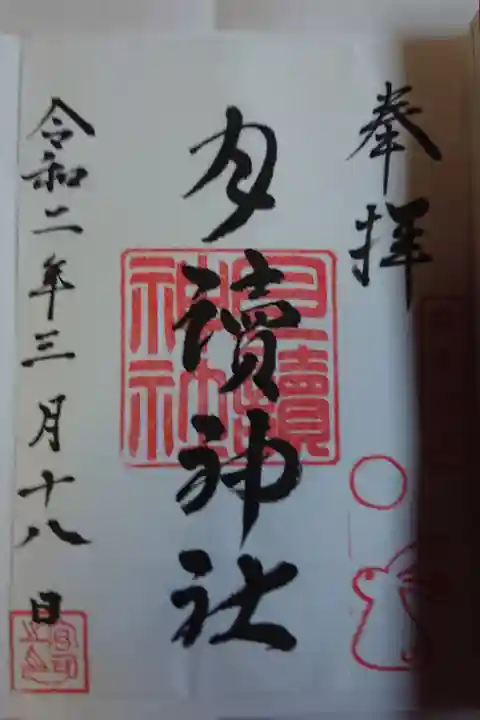 奉拝
月讀神社
令和二年三月十八日
月讀神社
宮司之印